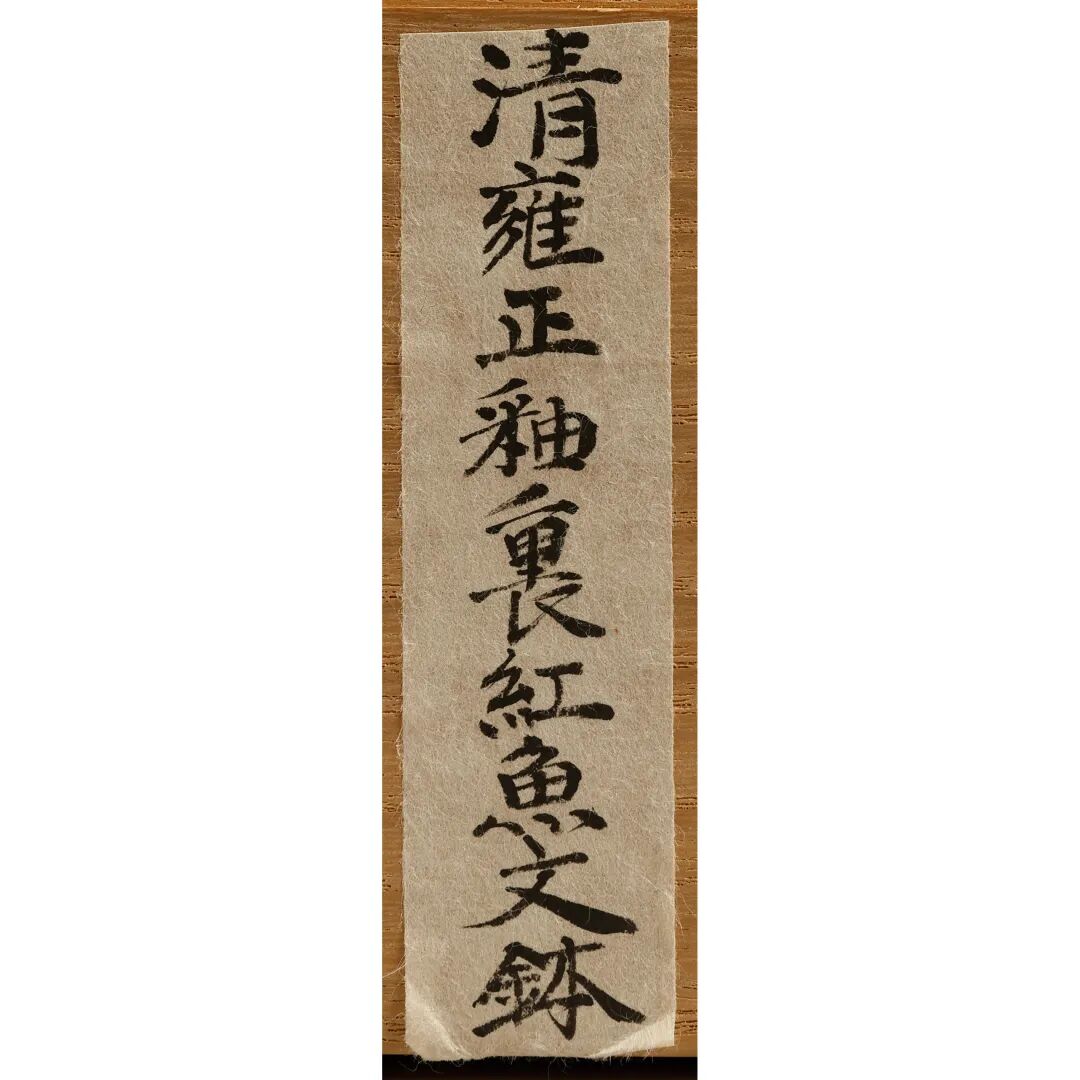 清雍正釉裏紅魚文鉢